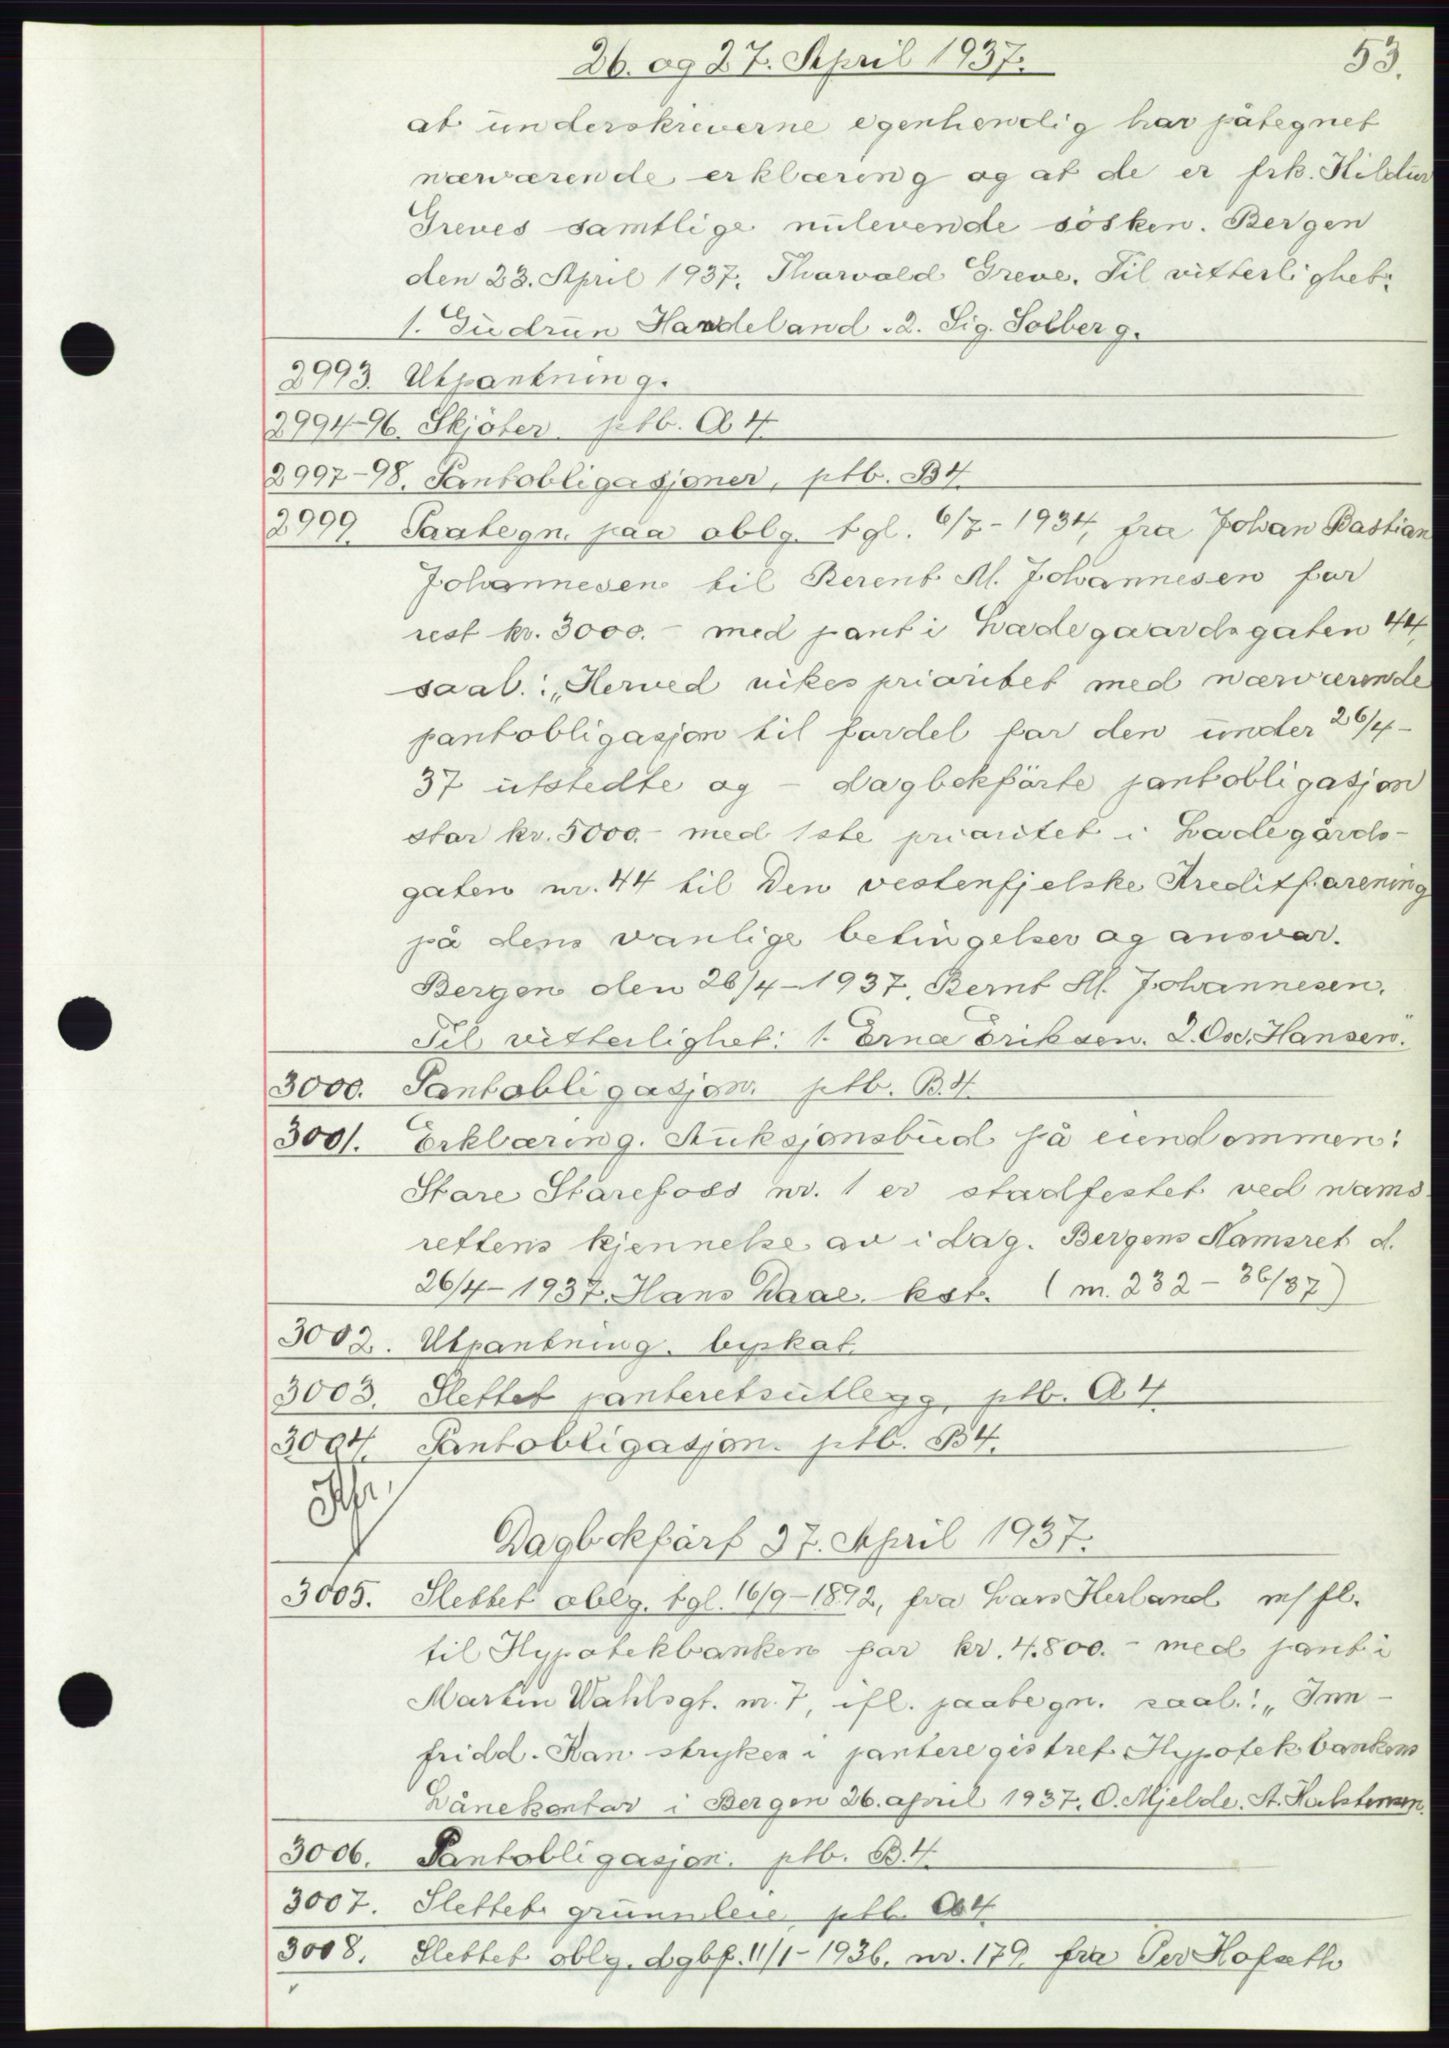 26. og 27. April 1937. 53.
at underskriverne egenhendig har påtegnet
nærværende erklæring og at de er frk. Hildur
Greves samtlige nulevende søsken. Bergen
den 23. April 1937. Thorvald Greve. Til vitterlighet:
1. Gudrun Handeland. 2. Sig. Solberg.
2993. Utpantning.
2994-96. Skjøter. ptb. A4.
2997-98. Pantobligasjoner, ptb. B4.
2999. Paategn. paa oblg. tgl. 6/7-1934, fra Johan Bastian
Johannesen til Berent M. Johannesen for
rest kr. 3000.- med pant i Ladegaardsgaten 44,
saal.: „Herved vikes prioritet med nærværende
pantobligasjon til fordel for den under 26/4-
37 utstedte og - dagbokførte pantobligasjon
stor kr. 5000.- med 1ste prioritet i Ladegårds-
gaten nr. 44 til Den vestenfjelske Kreditforening
på dens vanlige betingelser og ansvar.
Bergen den 26/4-1937. Bernt M. Johannesen.
Til vitterlighet: 1. Erna Eriksen. 2. Osv. Hansen."
3000. Pantobligasjon. ptb. B.4.
3001. Erklæring. Auksjonsbud på eiendommen:
Store Starefoss nr. 1 er stadfestet ved nams-
rettens kjennelse av idag. Bergens Namsret d.
26/4-1937. Hans Daae. kst. (m. 232-36/37)
3002. Utpantning. byskat.
3003. Slettet panteretsutlegg, ptb. A4.
3004. Pantobligasjon. ptb. B4.
Dagbokført 27. April 1937.
3005. Slettet oblg. tgl. 16/9-1892, fra Lars Herland m/fl.
til Hypotekbanken for kr. 4.800.- med pant i
Martin Wahlsgt. nr. 7, ifl. paategn. saal.: „Inn-
fridd. Kan strykes i panteregistret Hypotekbankens
Lånekontor i Bergen 26. april 1937. O. Mjelde. A. Halstensen.
3006. Pantobligasjon. ptb. B.4.
3007. Slettet grunnleie ptb. A4.
3008. Slettet oblg. dgbf. 11/1-1936. nr. 179. fra Per Hofseth